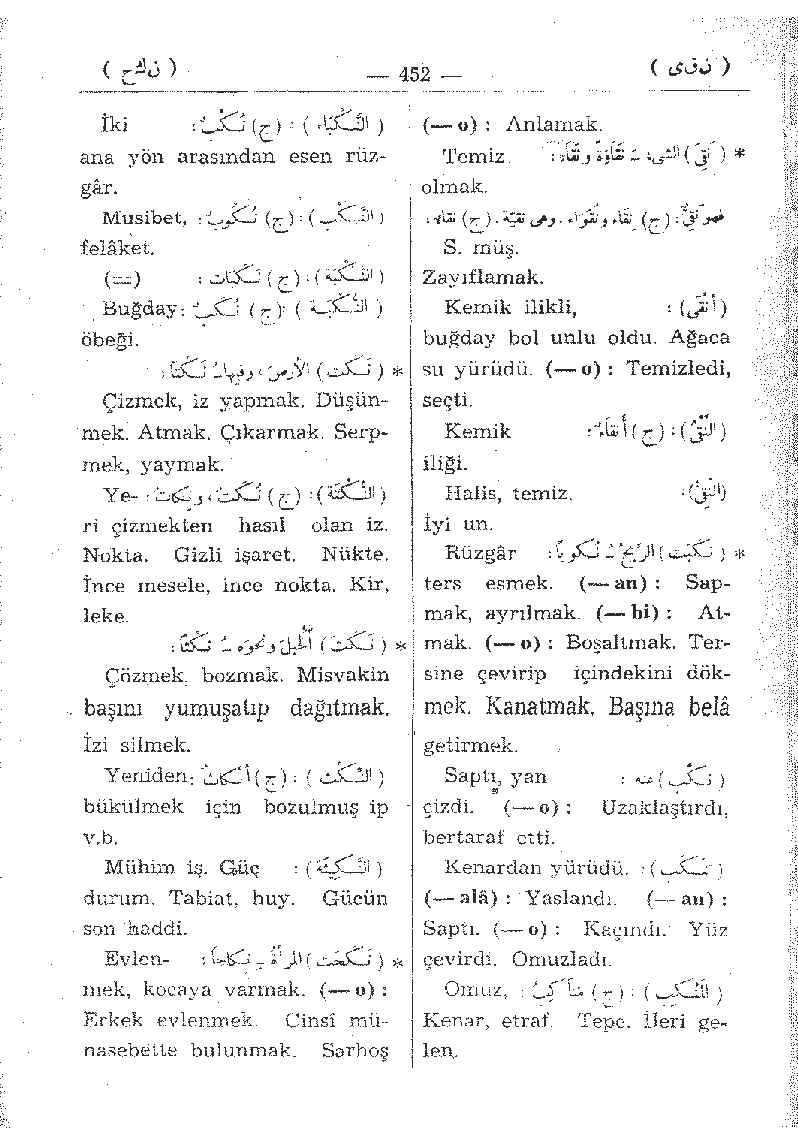 ( نكح ) — 452 — ( نقى )
(— o) : Anlamak.
* ( نَقِىَ ) الشىء، ـَ نقاوةً ونقاءً : Temiz
olmak.
فهو نقىٌّ : (ج) نقاء ونقواء. وهى نقيّة. (ج) نقاء.
S. müş.
Zayıflamak.
(أنْقى) : Kemik ilikli,
buğday bol unlu oldu. Ağaca
su yürüdü. (— o) : Temizledi,
seçti.
(النِّقْىُ) : (ج) أنقاءٌ : Kemik
iliği.
(النَّقِىُّ) : Halis, temiz.
İyi un.
* ( نَكَبَت ) الرّيحُ ـُ نُكوباً : Rüzgâr
ters esmek. (— an) : Sap-
mak, ayrılmak. (— bi) : At-
mak. (— o) : Boşaltmak. Ter-
sine çevirip içindekini dök-
mek. Kanatmak. Başına belâ
getirmek.
( نكَّب ) عنه : Saptı, yan
çizdi. (— o) : Uzaklaştırdı,
bertaraf etti.
( تنكَّب ) : Kenardan yürüdü.
(— alâ) : Yaslandı. (— an) :
Saptı. (— o) : Kaçındı. Yüz
çevirdi. Omuzladı.
( المَنْكِب ) : (ج) مَناكِبُ : Omuz,
Kenar, etraf. Tepe. İleri ge-
len.
( النَّكْباء ) : (ج) نُكْبٌ : İki
ana yön arasından esen rüz-
gâr.
( النَّكْب ) : (ج) نُكُوبٌ : Musibet,
felâket.
( النَّكْبَة ) : (ج) نَكَبات : (=)
( النُّكْبَة ) : (ج) نُكَبٌ : Buğday
öbeği.
* ( نَكَت ) الأرضَ، وفيها ـُ نَكْتاً :
Çizmek, iz yapmak. Düşün-
mek. Atmak. Çıkarmak. Serp-
mek, yaymak.
( النُّكْتَة ) : (ج) نُكَتٌ، ونِكاتٌ : Ye-
ri çizmekten hasıl olan iz.
Nokta. Gizli işaret. Nükte.
İnce mesele, ince nokta. Kir,
leke.
* ( نَكَث ) الحَبْلَ ونحوه ـُ نَكْثاً :
Çözmek, bozmak. Misvakin
başını yumuşatıp dağıtmak.
İzi silmek.
( النِّكْث ) : (ج) أنكاثٌ : Yeniden
bükülmek için bozulmuş ip
v.b.
( النَّكيثَة ) : Mühim iş. Güç
durum. Tabiat, huy. Gücün
son haddi.
* ( نَكَحَت ) المرأةُ ـِ نِكاحاً : Evlen-
mek, kocaya varmak. (— o) :
Erkek evlenmek. Cinsî mü-
nasebette bulunmak. Sarhoş